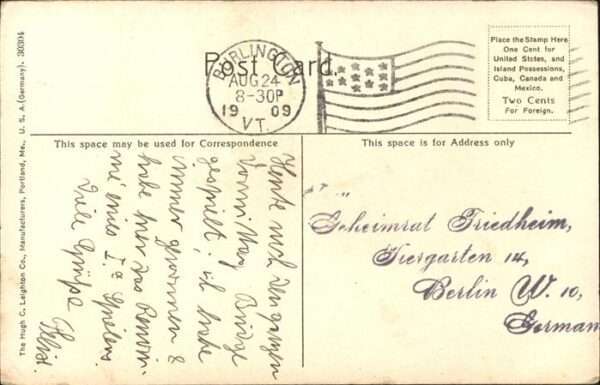 The Hugh C. Leighton Co., Manufacturers, Portland, Me., U. S. A. (Germany). 30304
Post Card.
BURLINGTON
AUG 24
8-30P
1909
VT.
Place the Stamp Here
One Cent for
United States, and
Island Possessions,
Cuba, Canada and
Mexico.
Two Cents
For Foreign.
This space may be used for Correspondence
This space is for Address only
Heute noch den ganzen
Vormittag Bridge
gespielt. ich habe
immer gewonnen &
habe hier das
eines Ia Spielers
Viele Grüße
Geheimrat Friedheim,
Tiergarten 14,
Berlin W. 10,
German